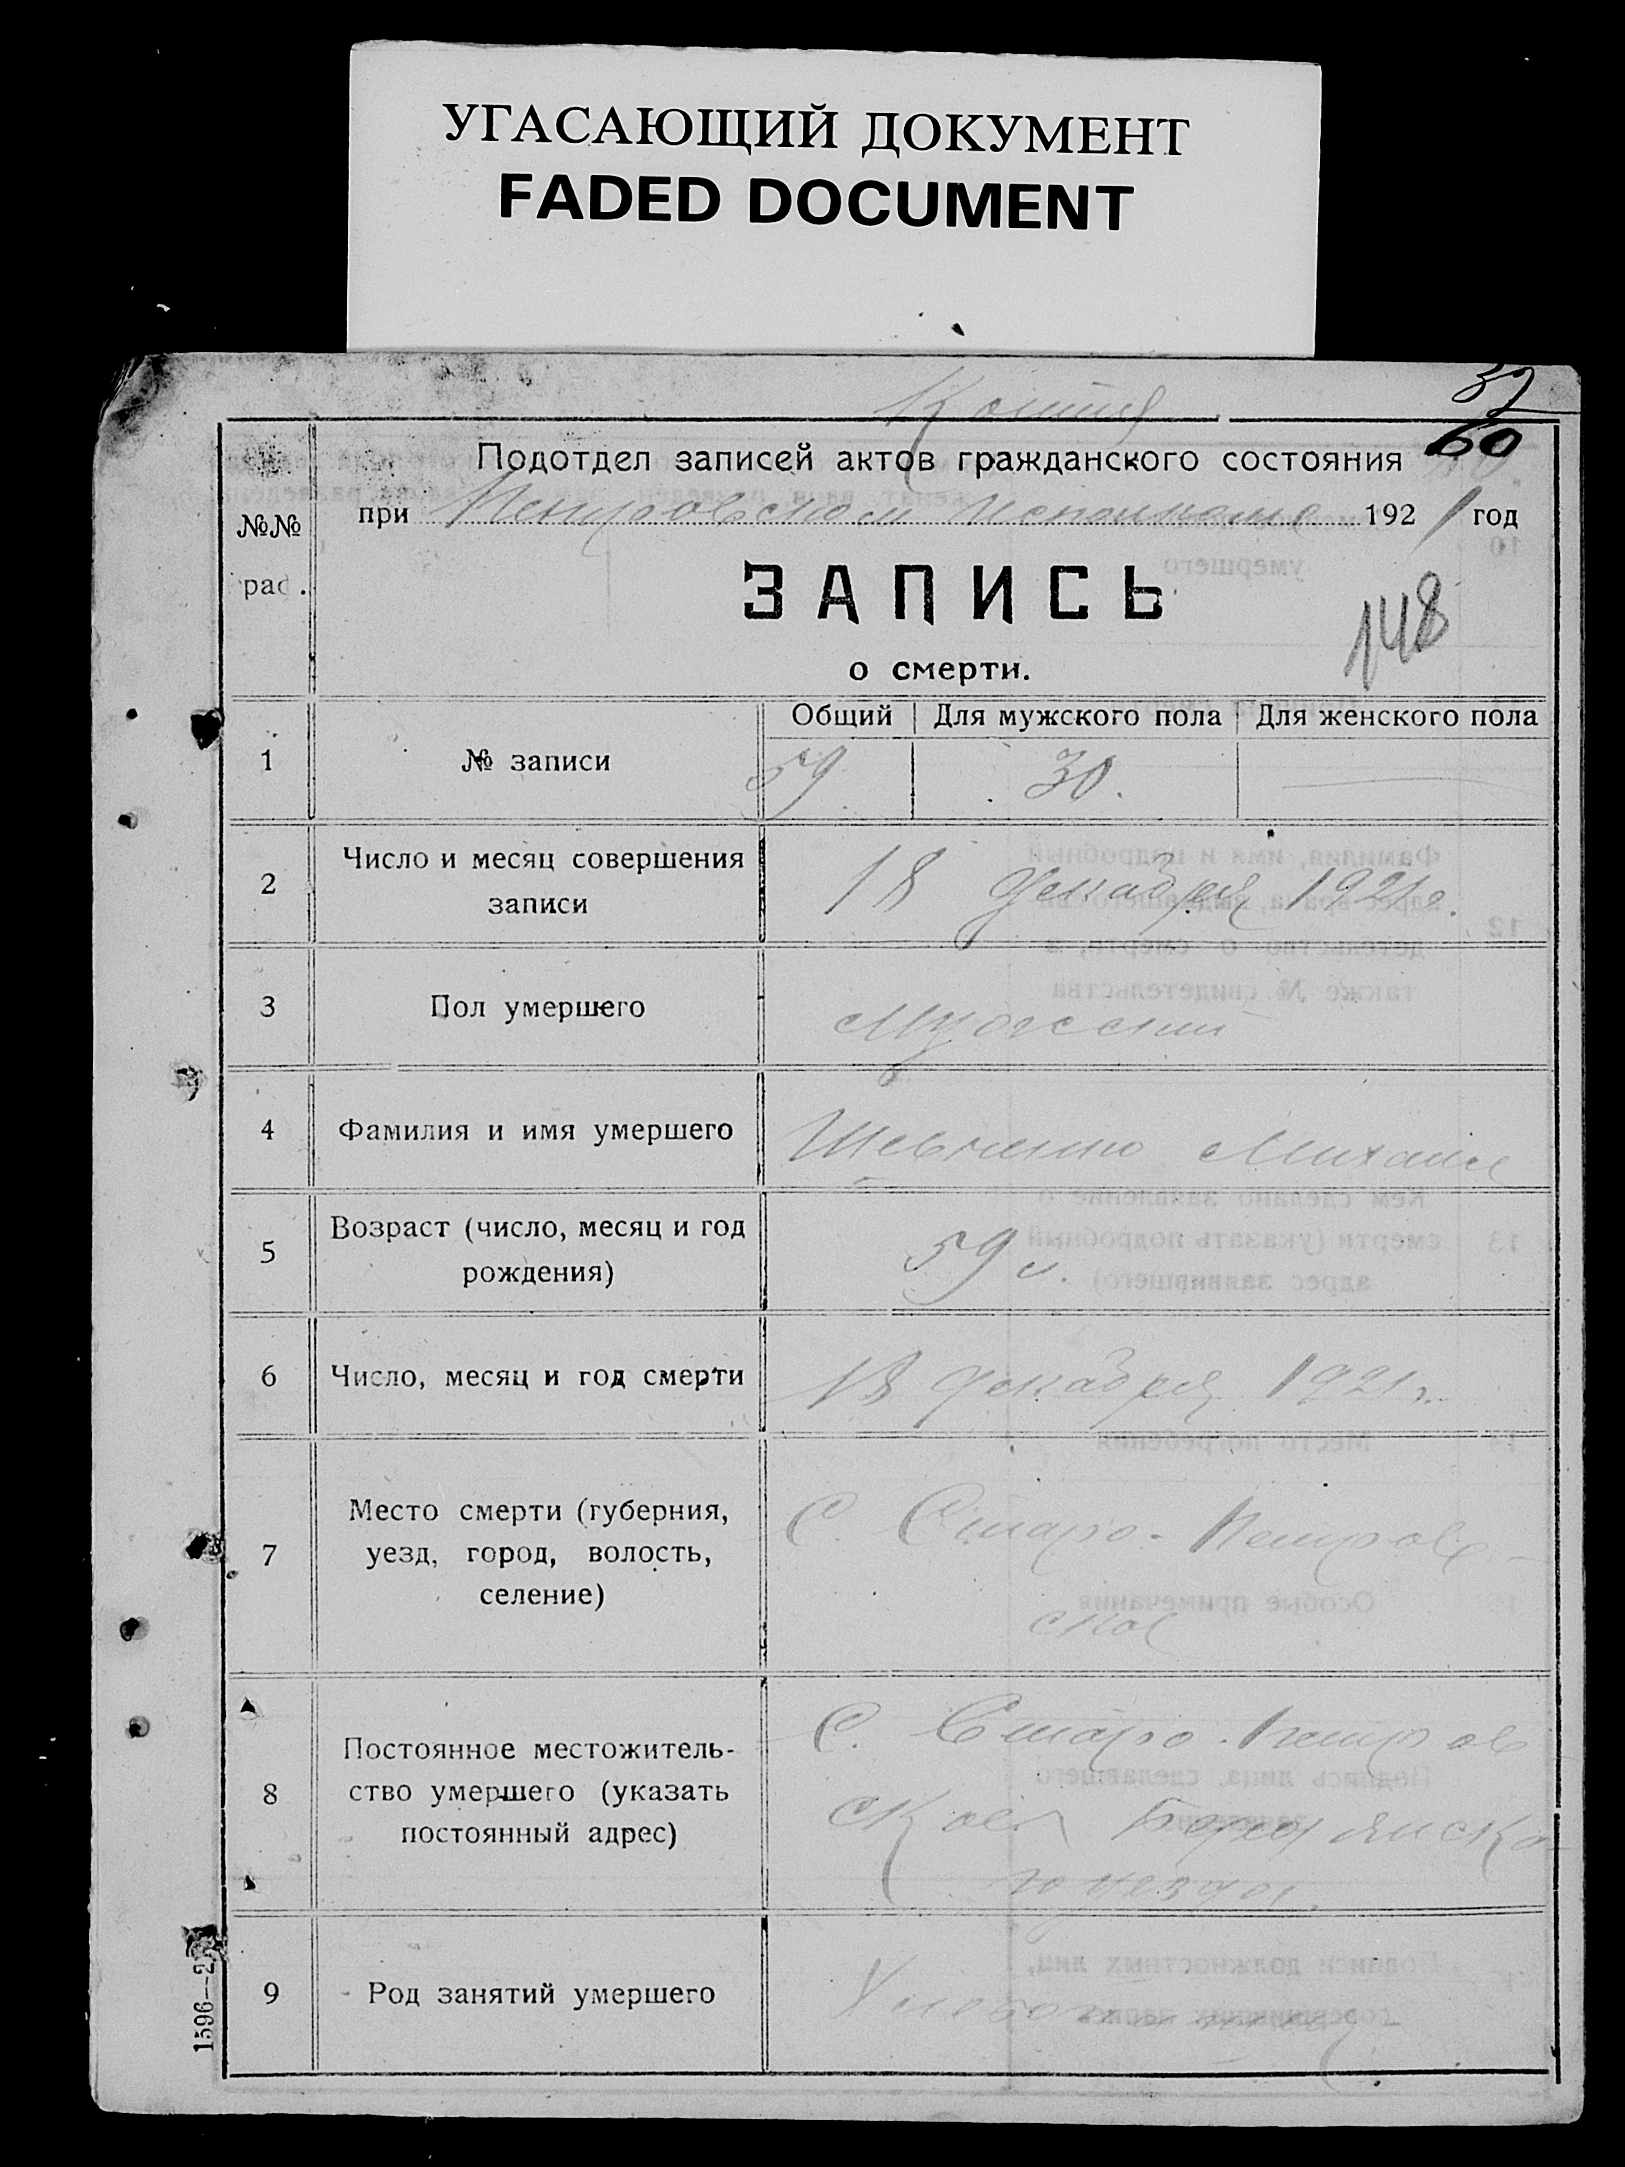 УГАСАЮЩИЙ ДОКУМЕНТ
FADED DOCUMENT
Копия
32
60
Подотдел записей актов гражданского состояния
при Петровском Исполкоме 1921 год
№№
раф.
ЗАПИСЬ
148
о смерти.
Общий Для мужского пола Для женского пола
1 № записи 59 30.
2 Число и месяц совершения
записи
18 декабря 1921 г.
3 Пол умершего Мужской
4 Фамилия и имя умершего Шевченко Михаил
5 Возраст (число, месяц и год
рождения)
59 л.
6 Число, месяц и год смерти 18 декабря 1921 г.
7 Место смерти (губерния,
уезд, город, волость,
селение)
С. Старо-Петров-
ское
8 Постоянное местожитель-
ство умершего (указать
постоянный адрес)
С. Старо-Петров
ское Бердянско
го уезда.
9 Род занятий умершего
1596—21